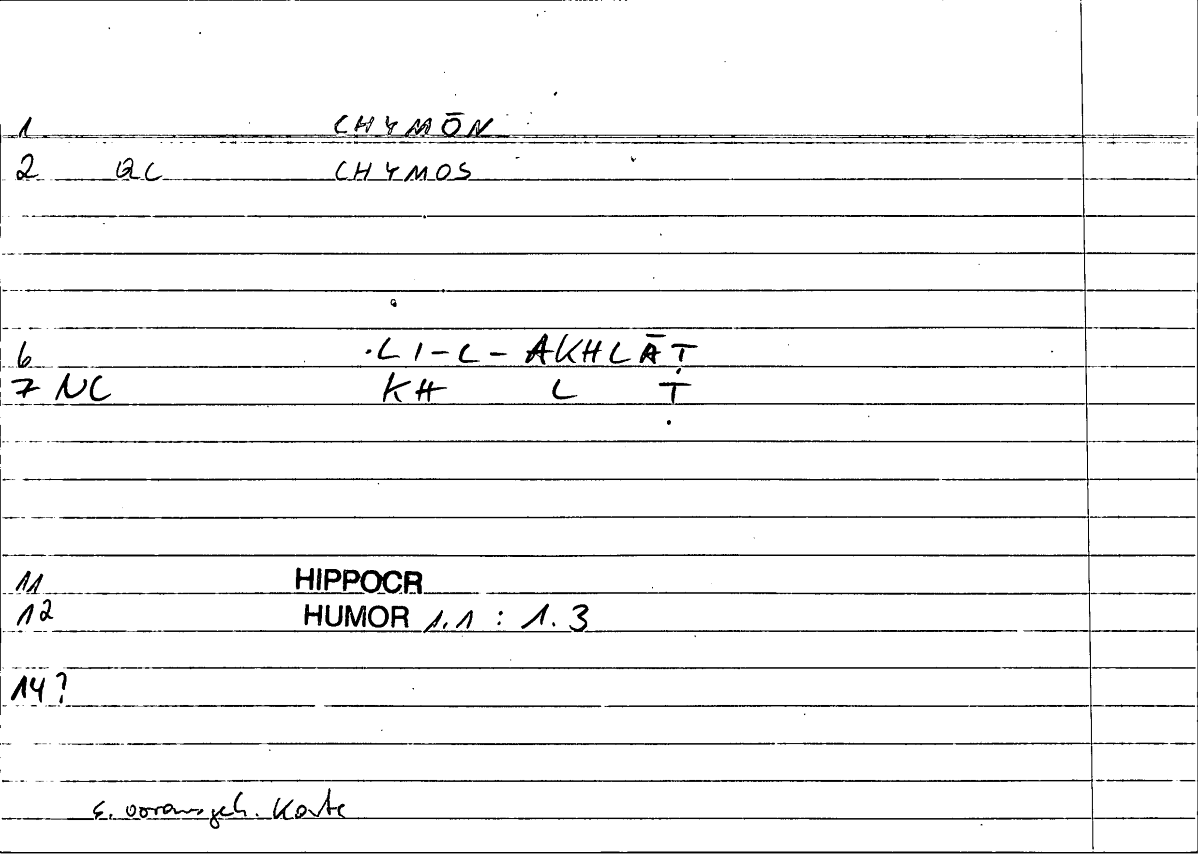 1 CHYMŌN
2 QC CHYMOS
6 LI-L-AKHLĀṬ
7 NC KH L Ṭ
11 HIPPOCR
12 HUMOR 1.1 : 1.3
14?
s. vorausgeh. Karte